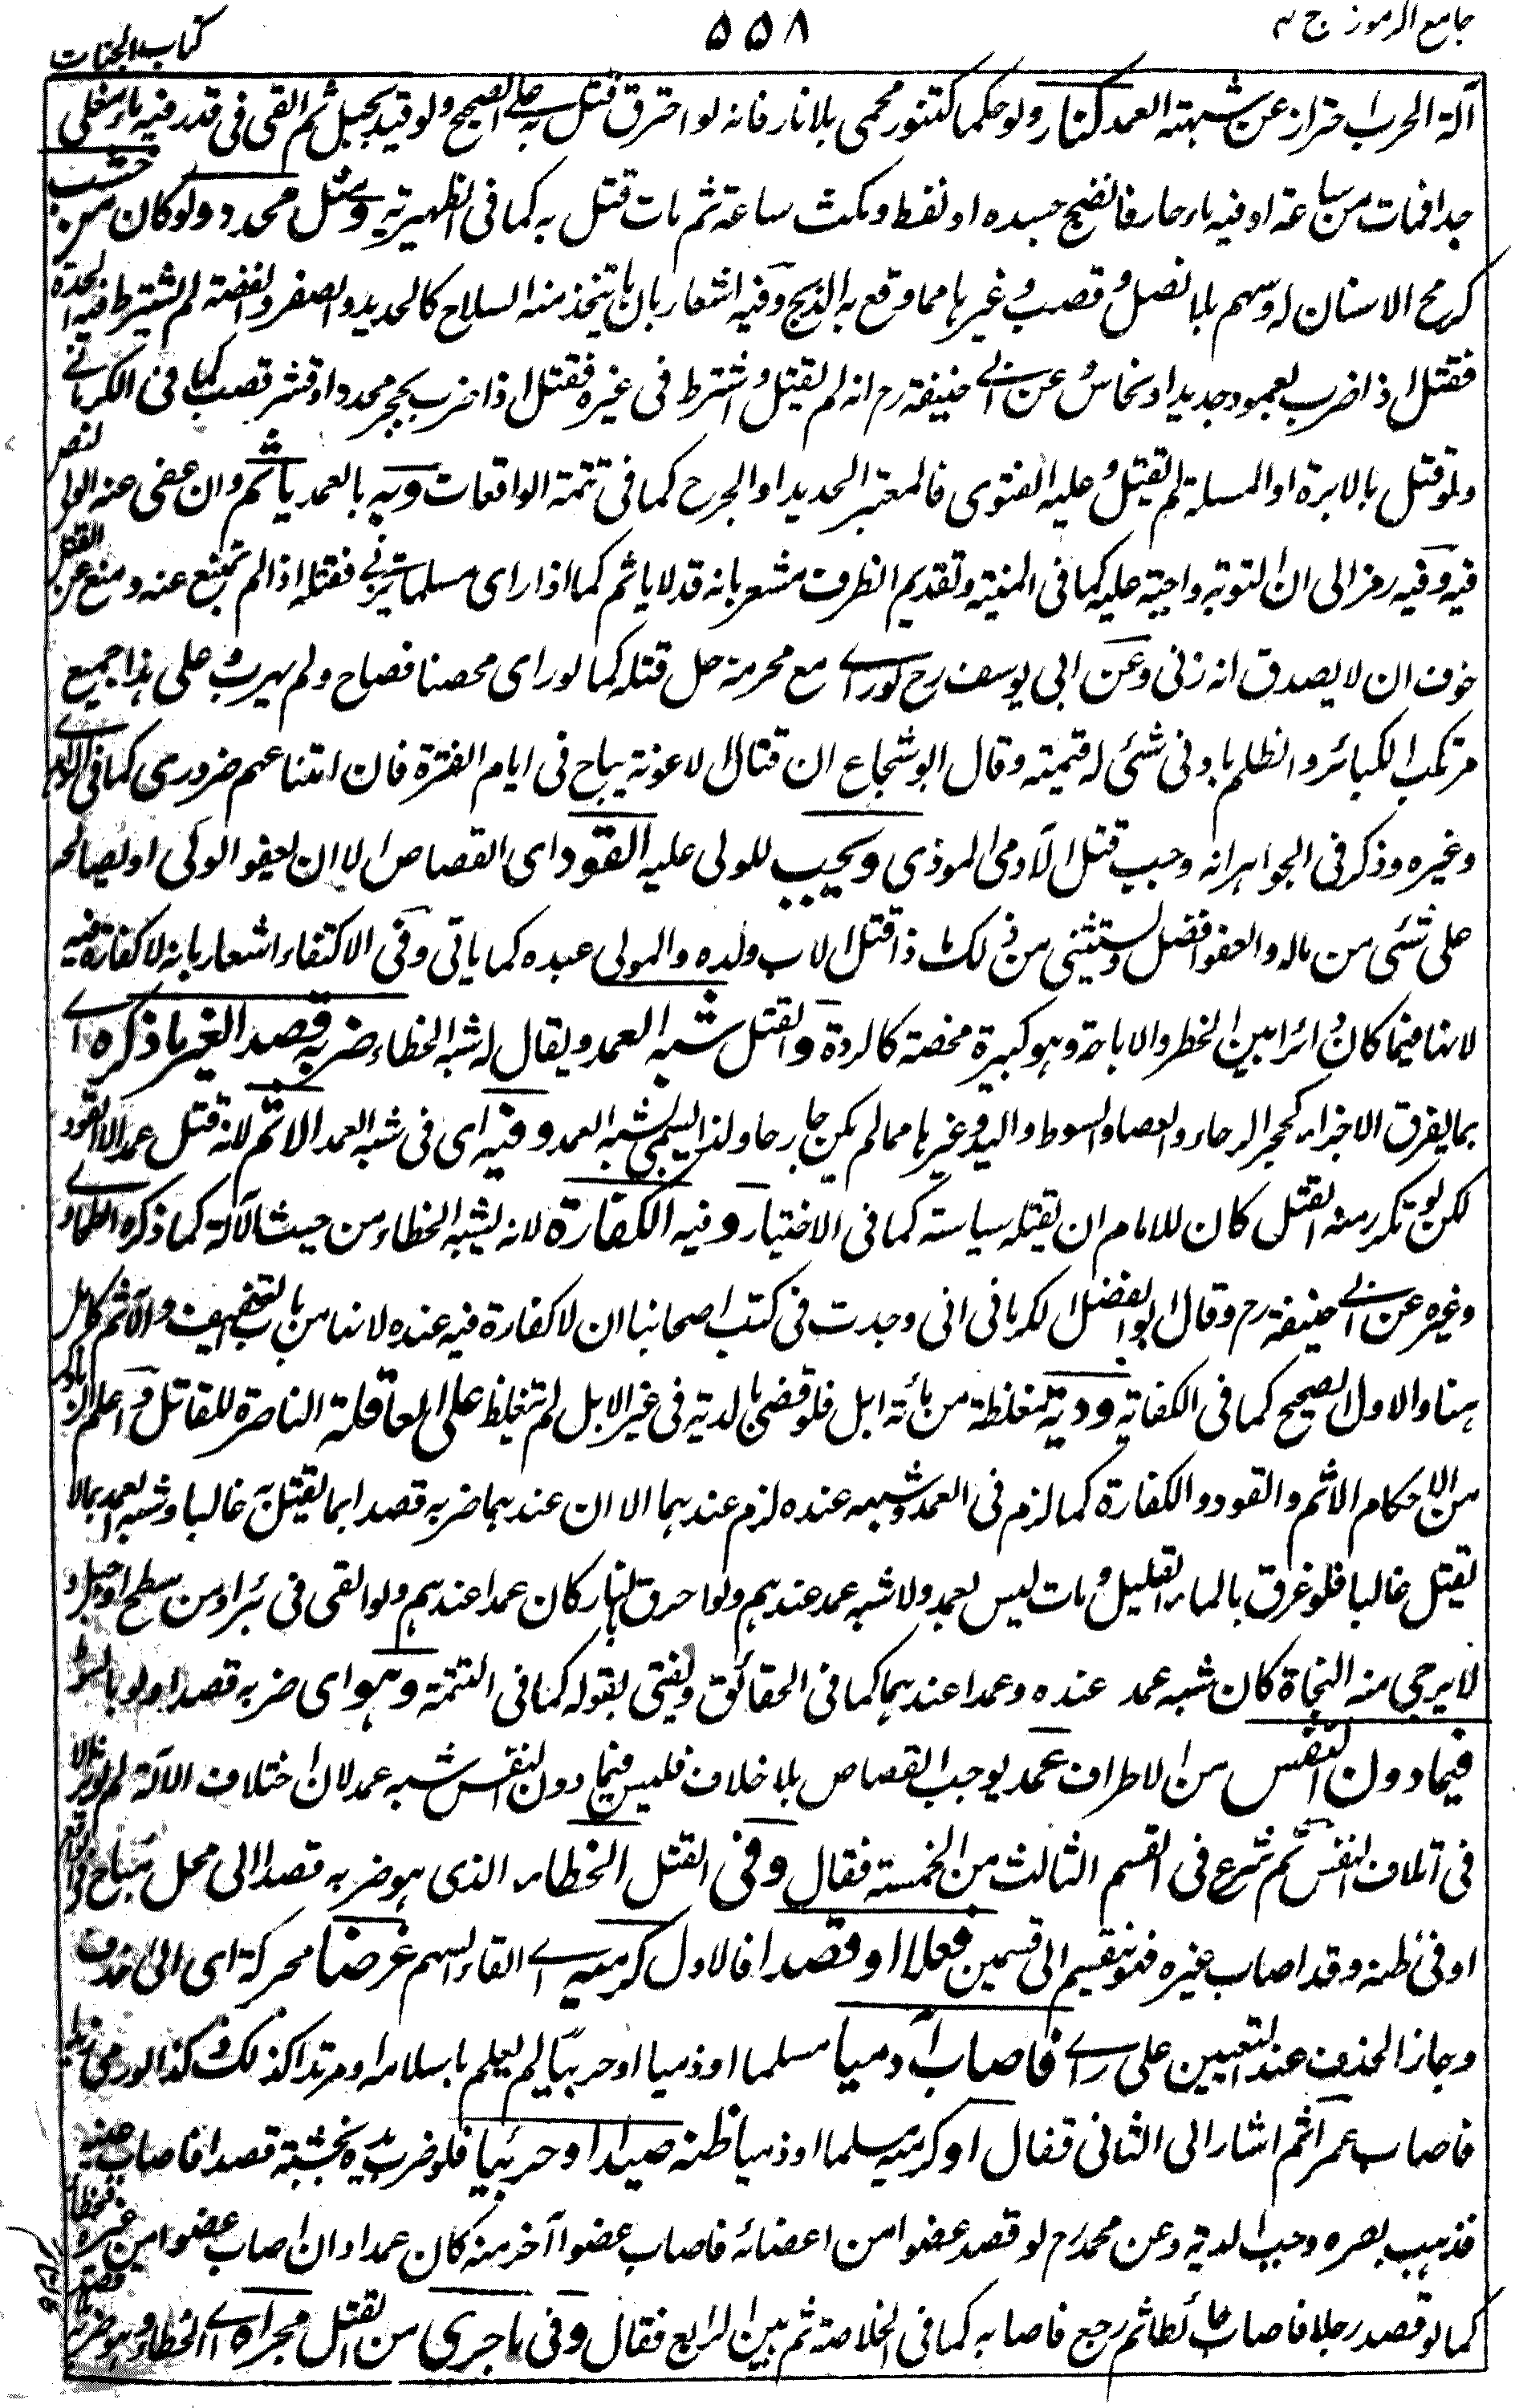 جامع الرموز ج ٢
٥٥٨
كتاب الجنايات
آلة الحرب احتراز عن شبهة العمد كنار ولو حكما كتنور محمى بلا نار فانه لو احترق قتل به على الصحيح ولو قيد بحبل ثم القى فى قدر فيه ماء مغلى
جدا فمات من ساعته او فيه ماء حار فانضج جسده او نفط ومكث ساعة ثم مات قتل به كما فى الظهيرية ومثل محدد ولو كان من خشب
كرمح لا سنان له وسهم بلا نصل وقصب وغيرها مما وقع به الذبح وفيه اشعار بان ما يتخذ منه السلاح كالحديد والصفر والفضة لم يشترط فيه الحدة
فقتل اذا ضرب بعمود حديد او نحاس وعن ابى حنيفة رح انه لم يقتل واشترط فى غيره فقتل اذا ضرب بحجر محدد او قشر قصب كما فى الكرمانى
ولو قتل بالابرة او المسلة لم يقتل وعليه الفتوى فالمعتبر الحديد او الجرح كما فى تتمة الواقعات وبه بالعمد ياثم وان عفى عنه الولى لنص
فيه وفيه رمز الى ان التوبة واجبة عليه كما فى المنية وتقديم الظرف مشعر بانه قد لا ياثم كما اذا راى مسلما يزنى فقتله اذا لم يمتنع عنه ومنع عن القتل
خوف ان لا يصدق انه زنى وعن ابى يوسف رح لو راى مع محرمه حل قتله كما لو راى محصنا فصاح ولم يهرب وعلى هذا جميع
مرتكب الكبائر والظلم بادنى شئى له قيمته وقال ابو شجاع ان قتال الاعونة يباح فى ايام الفترة فان امتناعهم ضرورى كما فى
وغيره وذكر فى الجواهر انه وجب قتل الآدمى الموذى ويجب للولى عليه القود اى القصاص الا ان يعفو الولى او يصالح
على شئى من ماله والعفو افضل ويستثنى من ذلك ما اذا قتل الاب ولده والمولى عبده كما ياتى وفى الاكتفاء اشعار بانه لا كفارة فيه
لانها فيما كان دائرا بين الحظر والاباحة وهو كبيرة محضة كالردة والقتل شبه العمد ويقال له شبه الخطاء ضربه قصدا بغير ما ذكره اى
بما يفرق الاجزاء كحجر الرحاء والعصا والسوط واليد وغيرها مما لم يكن جارحا ولذا يسمى بشبه العمد وفيه اى فى شبه العمد الاثم لانه قتل عمد لا القود
لكن لو تكرر منه القتل كان للامام ان يقتله سياسة كما فى الاختيار وفيه الكفارة لانه يشبه الخطاء من حيث الآلة كما ذكره الطحاوى
وغيره عن ابى حنيفة رح وقال ابو الفضل الكرمانى انى وجدت فى كتب اصحابنا ان لا كفارة فيه عنده لانها من باب التخفيف والاثم كامل
هنا والاول الصحيح كما فى الكفاية ودية مغلظة من مائة ابل فلو قضى بالدية فى غير الابل لم تغلظ على العاقلة الناصرة للقاتل واعلم ان
من الاحكام الاثم والقود والكفارة كما لزم فى العمد وشبهه عنده لزم عندهما الا ان عندهما ضربه قصدا بما يقتل به غالبا وشبه العمد بما لا
يقتل غالبا فلو غرق بالماء القليل ومات ليس بعمد ولا شبه عمد عندهم ولو احرق بالنار كان عمدا عندهم ولو القى فى بئر او من سطح او جبل و
لا يرجى منه النجاة كان شبه عمد عنده وعمدا عندهما كما فى الحقائق ويفتى بقوله كما فى التتمة وهو اى ضربه قصدا ولو بالسوط
فيما دون النفس من الاطراف عمد يوجب القصاص بلا خلاف فليس فيما دون النفس شبه عمد لان اختلاف الآلة لم يوثر الا
فى اتلاف النفس ثم شرع فى القسم الثالث من الخمسة فقال وفى القتل الخطاء الذى هو ضربه قصدا الى محل مباح فى الواقع
او فى ظنه وقد اصاب غيره فهو ينقسم الى قسمين فعلا او قصدا فالاول كرميه اى القاء السهم غرضا محركة اى الى هدف
وجاز الحذف عند التعيين على راى فاصاب آدميا مسلما او ذميا او حربيا لم يعلم باسلامه او مرتدا كذلك وكذا لو رمى زيدا
فاصاب عمرا ثم اشار الى الثانى فقال او كرميه مسلما او ذميا ظنه صيدا او حربيا فلو ضرب يده بخشبة قصدا فاصاب عينه
فذهب بصره وجب الدية وعن محمد رح لو قصد عضوا من اعضائه فاصاب عضوا آخر منه كان عمدا وان اصاب عضوا من غيره فخطاء
كما لو قصد رجلا فاصاب حائطا ثم رجع فاصابه كما فى الخلاصة ثم بين الرابع فقال وفى ما جرى من القتل مجراه اى الخطاء وهو ضربه